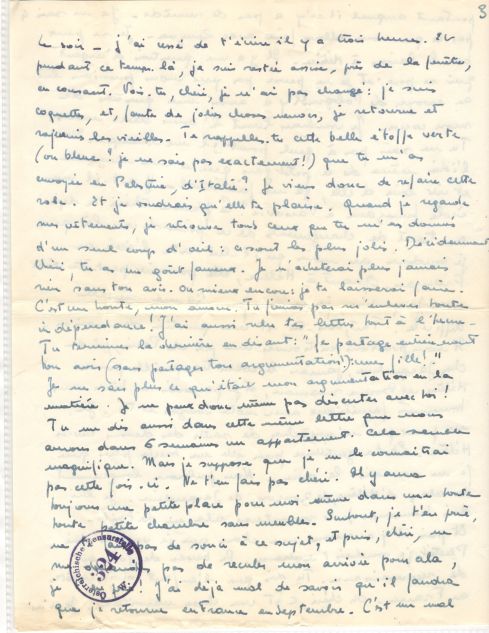 3
Ce soir - j'ai cessé de t'écrire il y a trois heures. Et
pendant ce temps là, je suis restée assise, près de la fenêtre,
en cousant. Vois-tu, chéri, je n'ai pas changé : je suis
coquette, et, faute de jolies choses neuves, je retourne et
rajeunis les vieilles. Te rappelles-tu cette belle étoffe verte
(ou bleue ? je ne sais pas exactement !) que tu m'as
envoyée en Palestine, d'Italie ? Je viens donc de refaire cette
robe. Et je voudrais qu'elle te plaise. Quand je regarde
mes vêtements, je retrouve tous ceux que tu m'as donnés
d'un seul coup d'oeil : ce sont les plus jolis. Décidemment
chéri, tu as un goût fameux. Je n'achèterai plus jamais
rien sans ton avis. Ou mieux encore : je te laisserai faire.
C'est une honte, mon amour. Tu finiras par m'enlever toute
indépendance. J'ai aussi relu tes lettres tout à l'heure.
Tu termines la dernière en disant : "Je partage entièrement
ton avis (sans partager ton argumentation !) : une fille !"
Je ne sais plus ce qu'était mon argumentation en la
matière. Je ne peux donc même pas discuter avec toi !
Tu me dis aussi dans cette même lettre que nous
aurons dans 6 semaines un appartement. Cela semble
magnifique. Mais je suppose que je ne le connaîtrai
pas cette fois-ci. Ne t'en fais pas chéri. Il y aura
toujours une petite place pour moi même dans une toute
toute petite chambre sans meubles. Surtout, je t'en prie,
ne pas de soucis à ce sujet, et puis, chéri, ne
me pas de reculer mon arrivée pour cela,
je J'ai déjà mal de savoir qu'il faudra
que je retourne en France en septembre. C'est un mal
Österreichische Zensurstelle